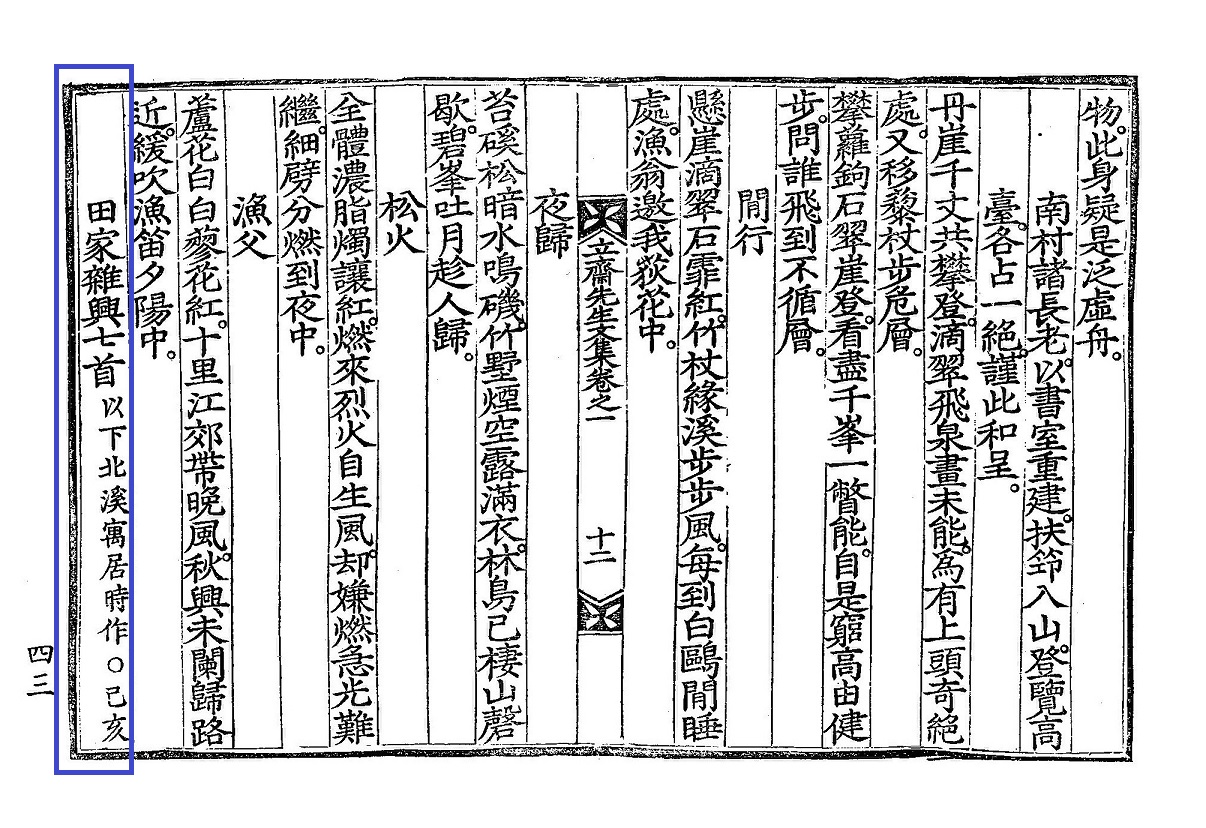 物。此身疑是泛虛舟。
南村諸長老。以書室重建。扶筇入山。登覽高
臺。各占一絕。謹此和呈。
丹崖千丈共攀登。滴翠飛泉畫未能。爲有上頭奇絕
處。又移藜杖步危層。
攀蘿鉤石翠崖登。看盡千峯一瞥能。自是窮高由健
步。問誰飛到不循層。
閒行
懸崖滴翠石霏紅。竹杖緣溪步步風。每到白鷗閒睡
處。漁翁邀我荻花中。
立齋先生文集卷之一
十二
夜歸
苔磎松暗水鳴磯。竹墅煙空露滿衣。林鳥已棲山磬
歇。碧峯吐月趁人歸。
松火
全體濃脂燭讓紅。燃來烈火自生風。却嫌燃急光難
繼。細劈分燃到夜中。
漁父
蘆花白白蓼花紅。十里江郊帶晩風。秋興未闌歸路
近。緩吹漁笛夕陽中。
田家雜興七首 以下北溪寓居時作○己亥
四三